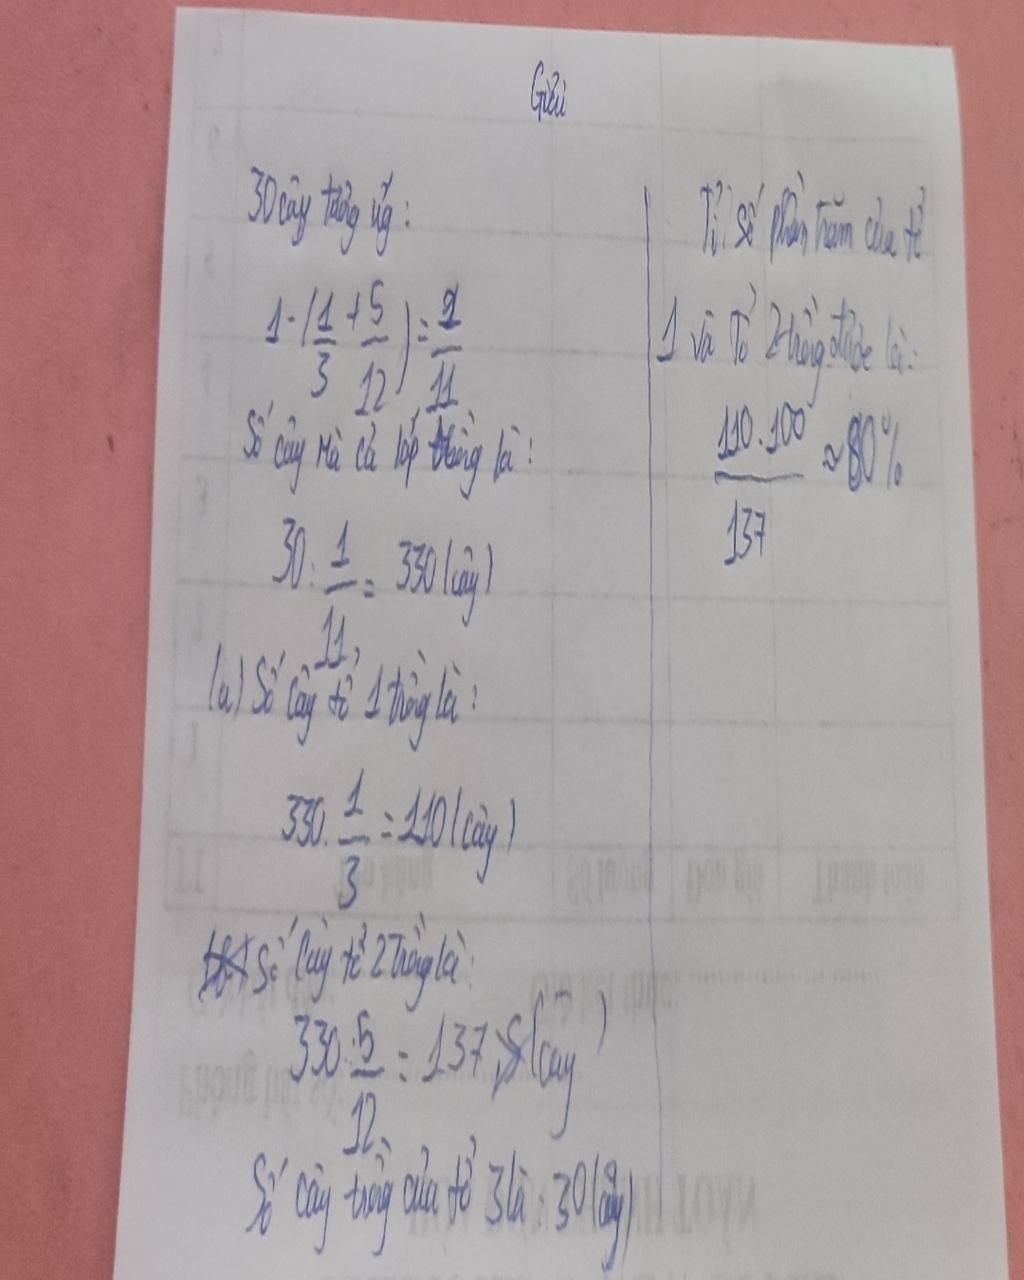 Giải
30 cây tương ứng:
1-(1/3+5/12)=1/11
Số cây mà cả lớp trồng là:
30:1/11= 330(cây)
(a) Số cây tổ 1 trồng là:
330.1/3=110(cây)
Số cây tổ 2 trồng là:
330.5/12=137,5(cây)
Số cây trồng của tổ 3 là: 30(cây)
Tỉ số phần trăm của tổ
1 và Tổ 2 trồng được là:
110.100/137≈80%